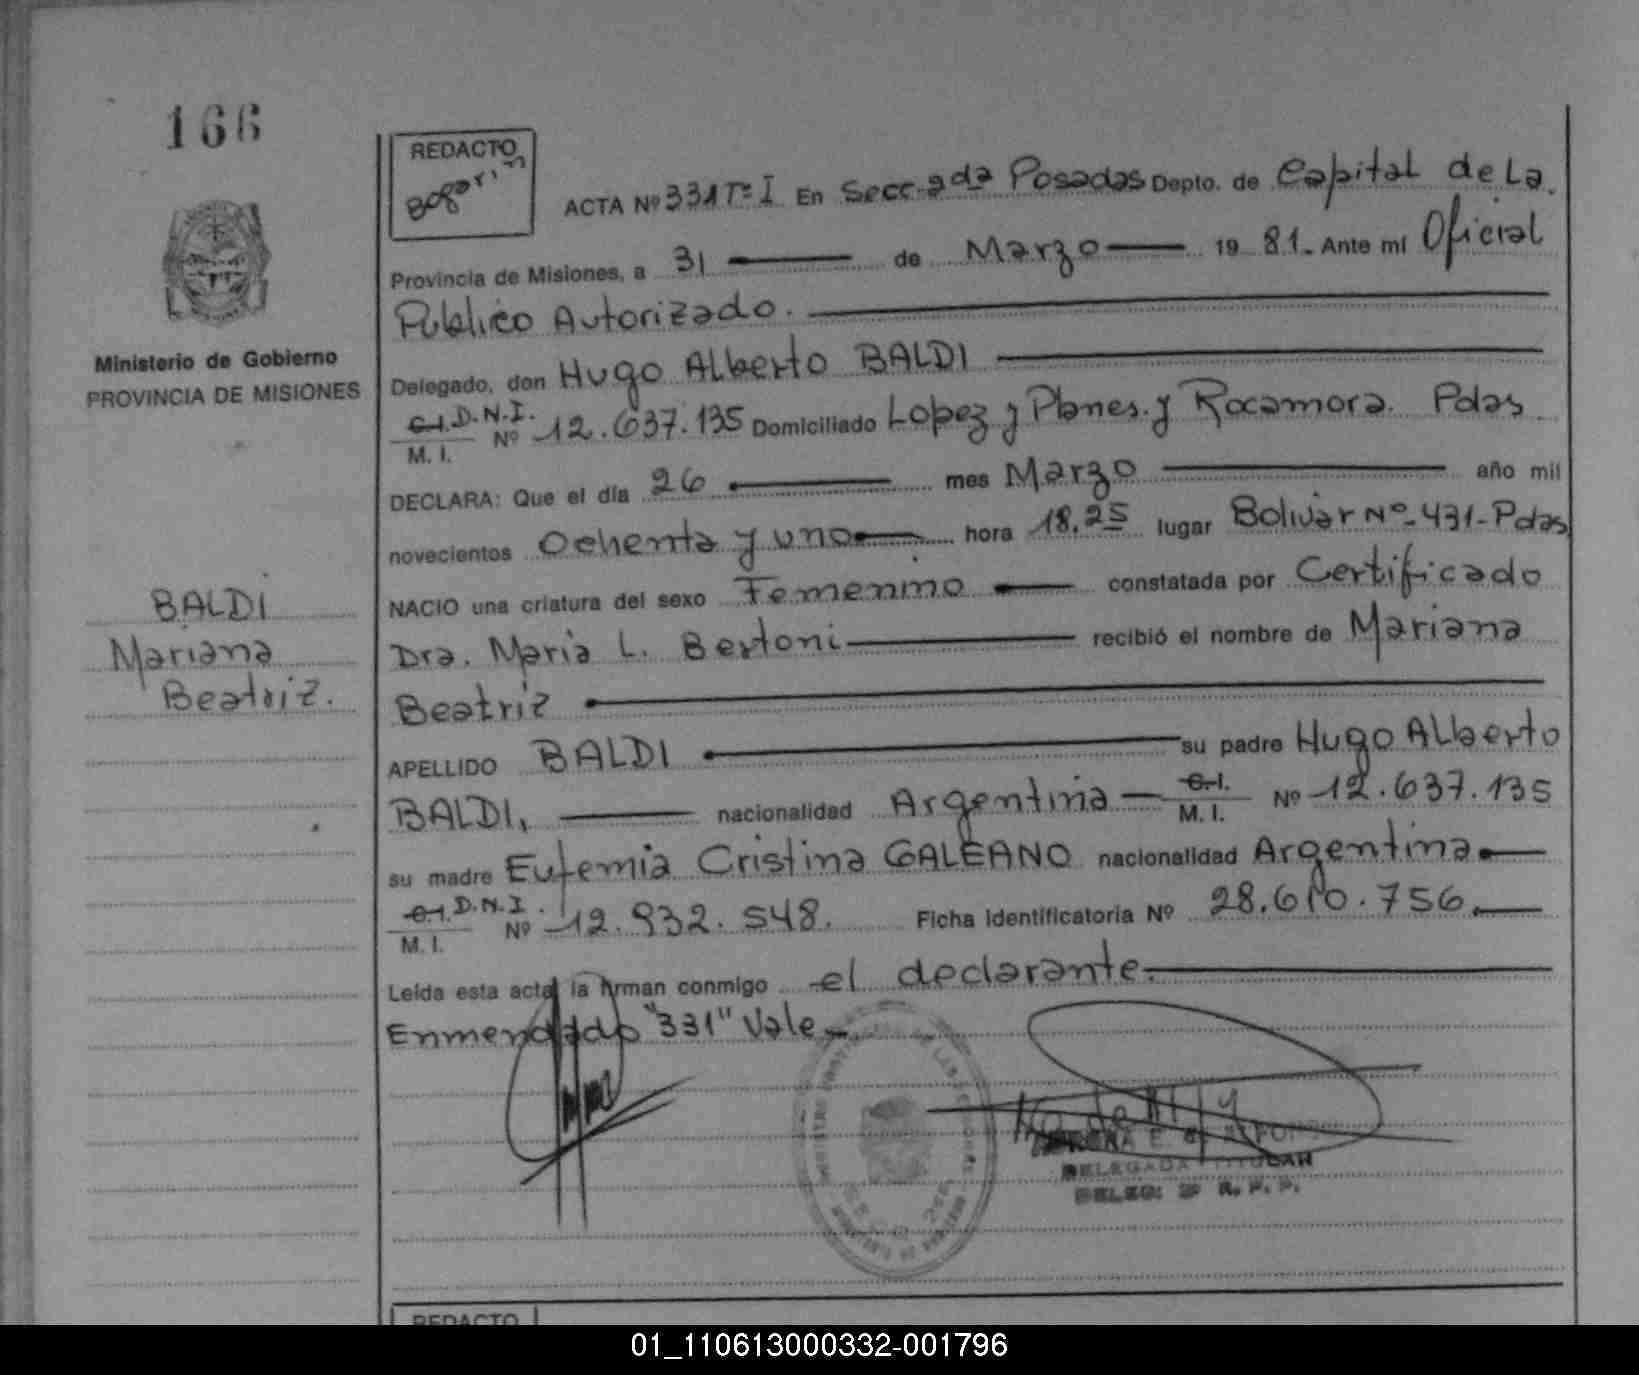 166
REDACTO
ACTA Nº 331 Tº I En Secc. 2da Posadas Depto. de Capital de La
Provincia de Misiones, a 31 de Marzo 19 81. Ante mí Oficial
Publico Autorizado.
Ministerio de Gobierno
PROVINCIA DE MISIONES
Delegado, don Hugo Alberto BALDI
C.I. D.N.I.
M. I. Nº 12.637.135 Domiciliado Lopez y Planes y Rocamora. Pdas
DECLARA: Que el día 26 mes Marzo año mil
novecientos Ochenta y uno hora 18,25 lugar Bolivar Nº-431-Pdas
BALDI
Mariana
Beatriz.
NACIO una criatura del sexo Femenino constatada por Certificado
Dra. Maria L. Bertoni recibió el nombre de Mariana
Beatriz
APELLIDO BALDI su padre Hugo Alberto
BALDI, nacionalidad Argentina C.I. M. I. Nº 12.637.135
su madre Eufemia Cristina GALEANO nacionalidad Argentina
C.I. D.N.I.
M. I. Nº 12.932.548. Ficha Identificatoria Nº 28.610.756.
Leída esta acta la firman conmigo el declarante.
Enmendado "331" Vale
DELEGADA TITULAR
DELEG: 2ª R. P. P.
REDACTO
01_110613000332-001796